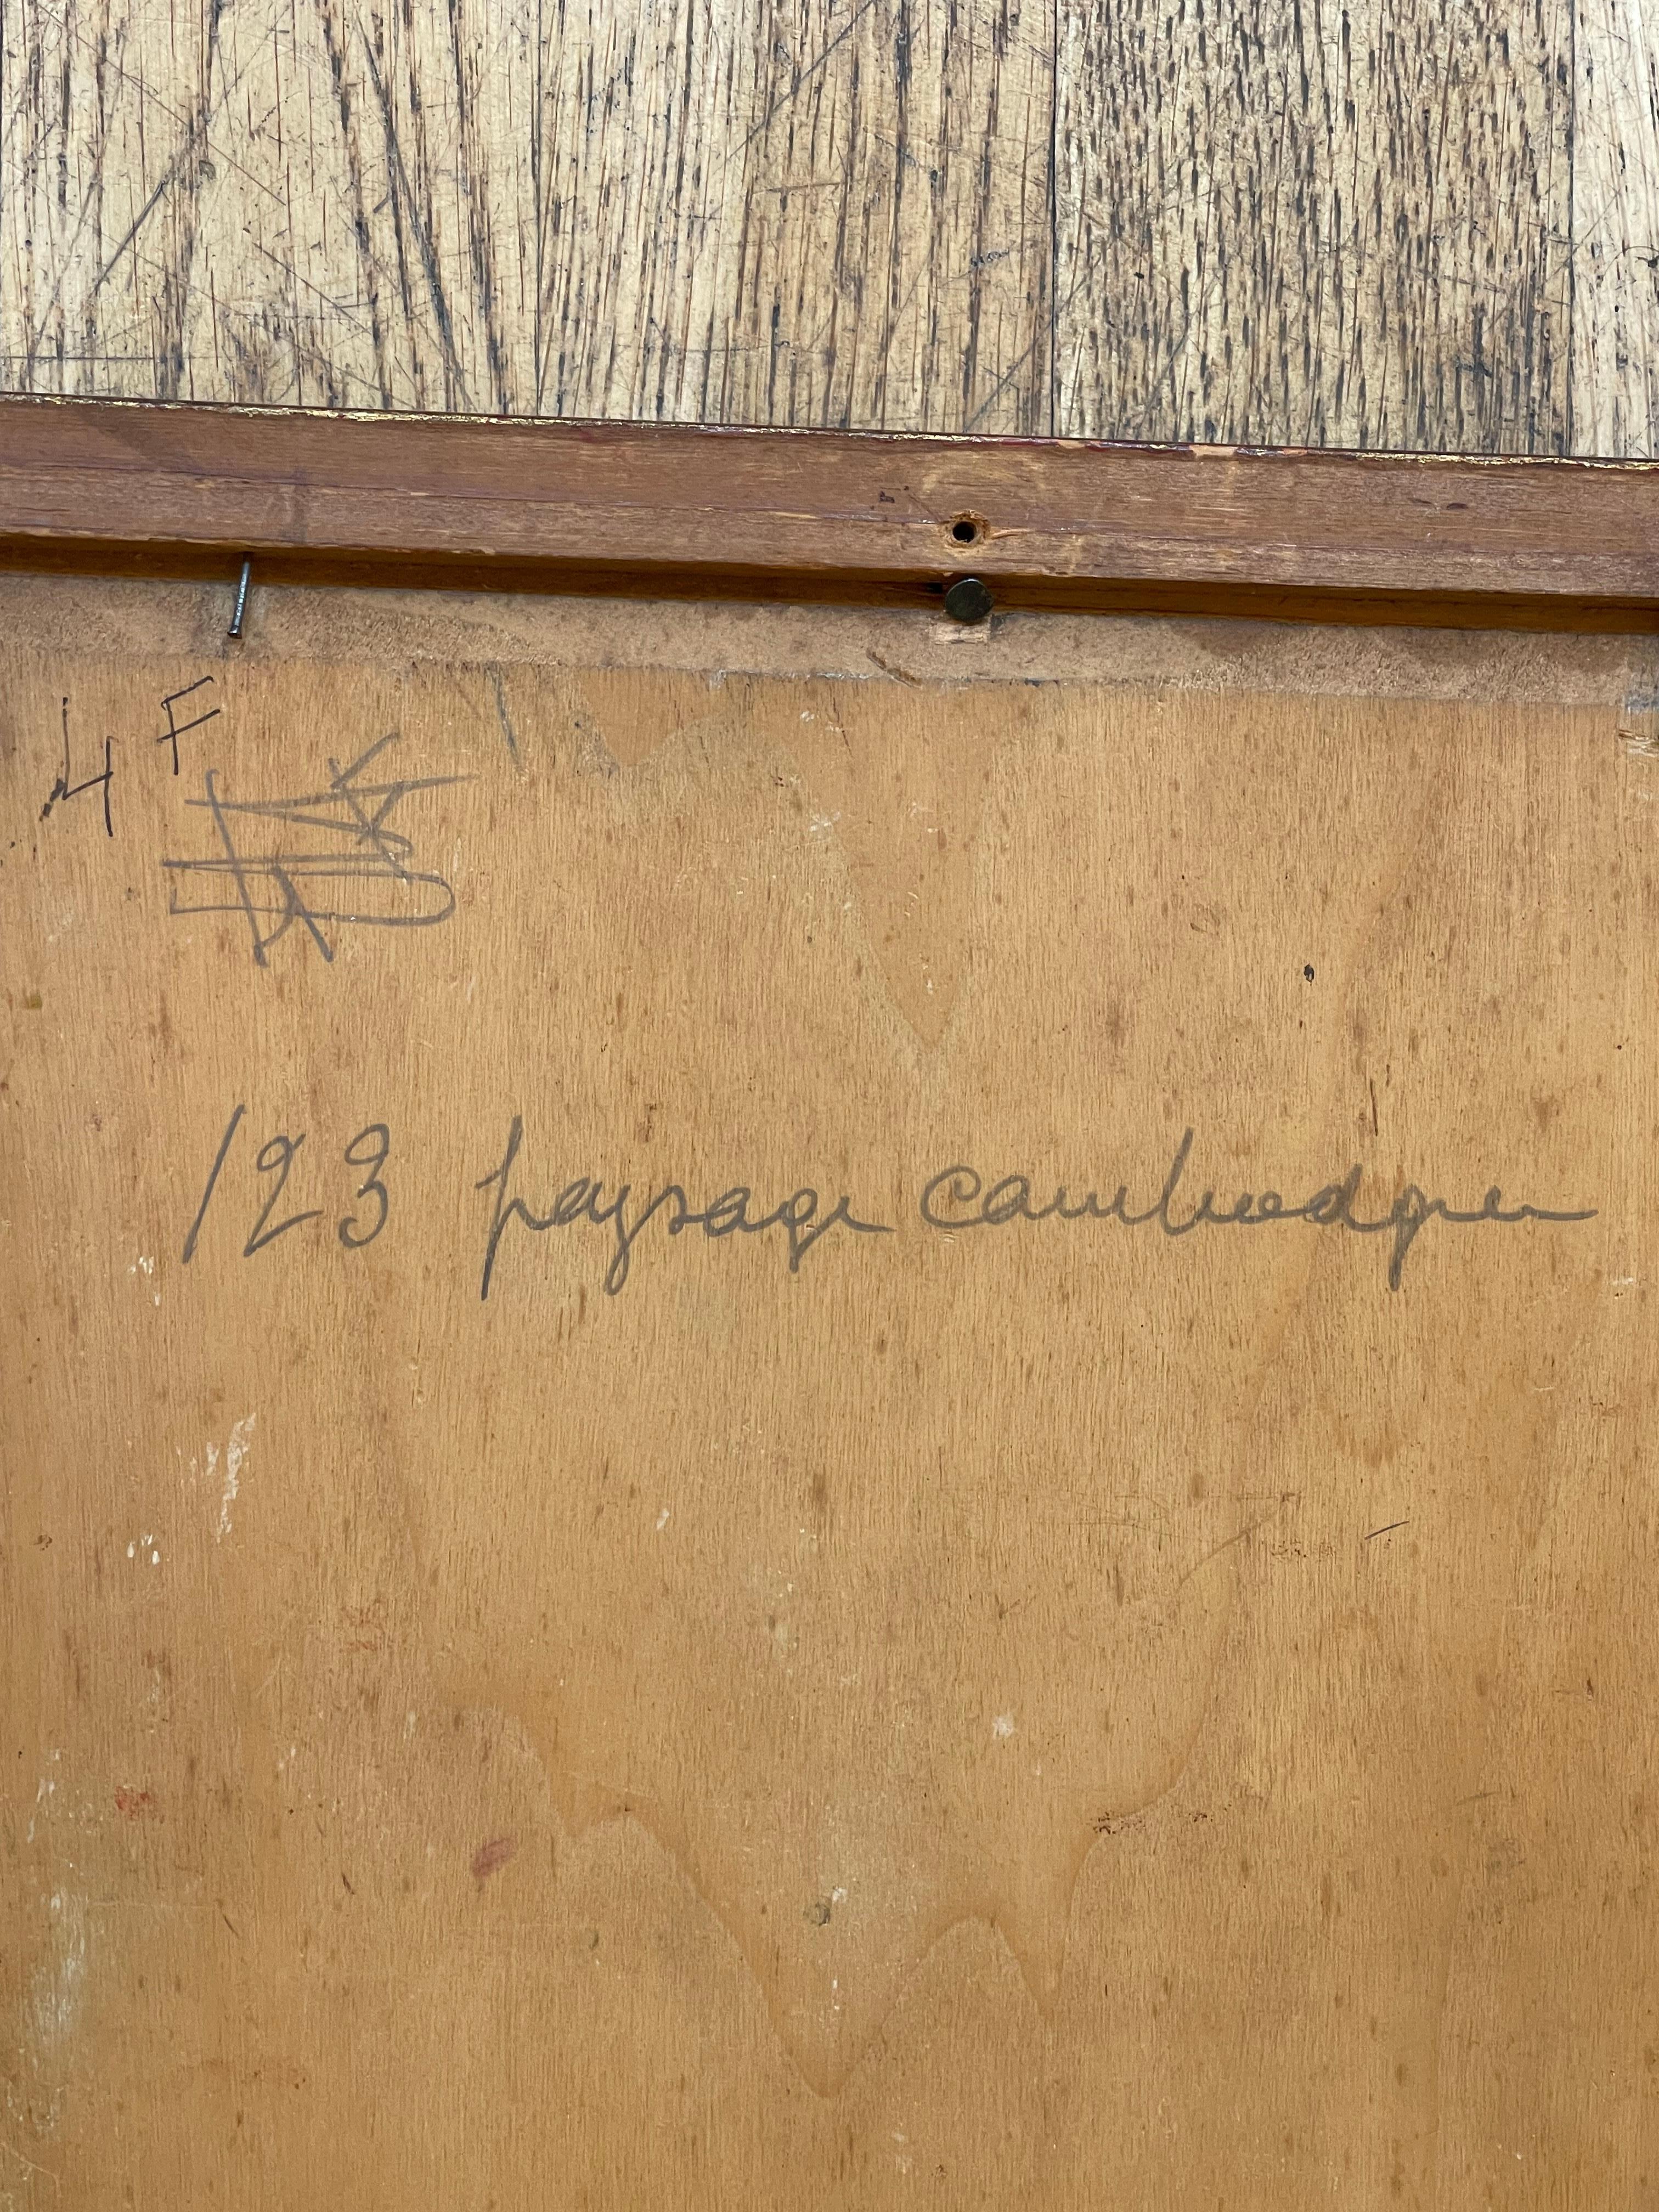 4F
123 paysage cambodgien